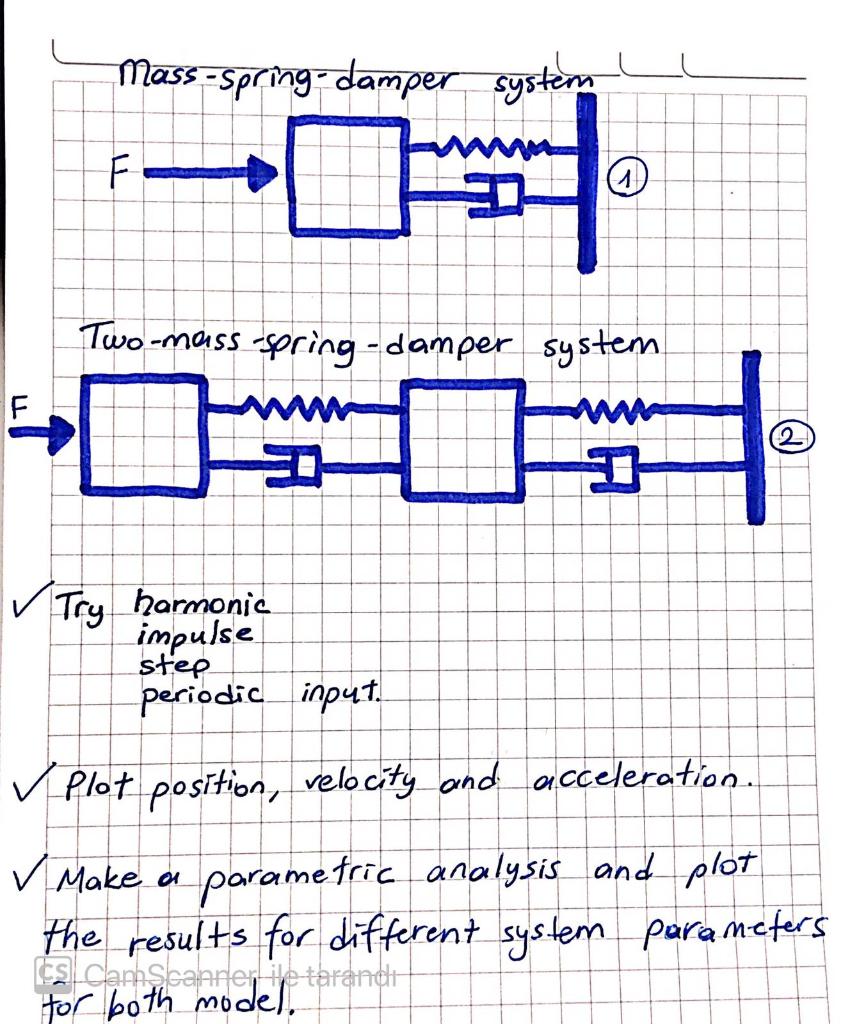 Mass-spring-damper system
F
1
Two-mass-spring-damper system
F
2
✓ Try harmonic
impulse
step
periodic input.
✓ Plot position, velocity and acceleration.
✓ Make a parametric analysis and plot
the results for different system parameters
CS CamScanner ile tarandı
for both model.